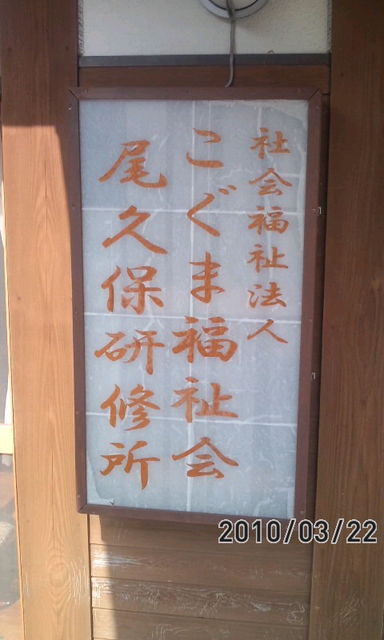 社会福祉法人
こぐま福祉会
尾久保研修所
2010/03/22